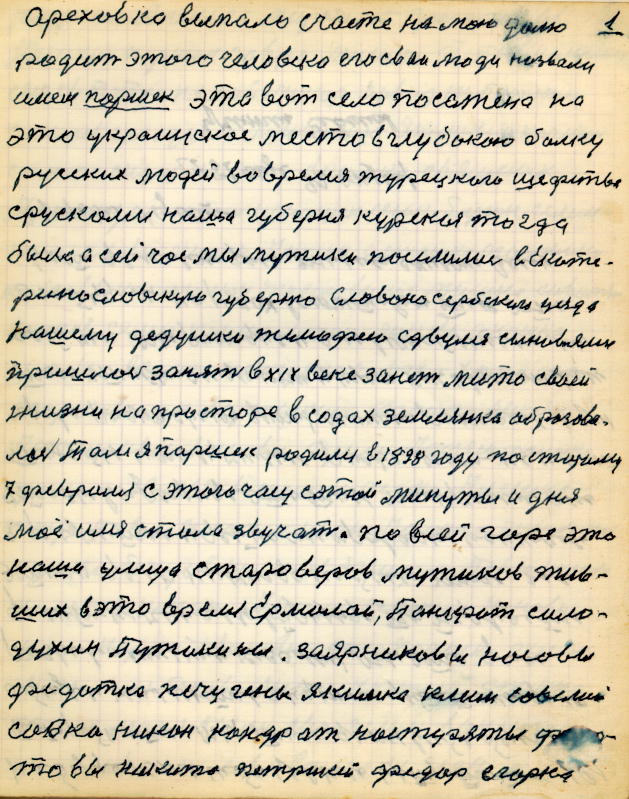 1
Ореховка выпало счасте на мою долю
родит этого человека его свои люди назвали
имем паршек эта вот село посажена на
это украинское место в глубокою балку
руских людей вовремя турецкого
срускоми наша губерня курская тогда
была а сей час мы мужики поселили в Екоте-
ринословскую губерню Словоносербского уезда
нашему дедушки тимофею сдвумя сыновями
пришлос занят в XIX веке занет место своей
жизни на просторе в содах землянка аброзова-
лас Там я паршек родился в 1898 году по старому
7 февраля с этого часу с этой минуты и дня
моё имя стала звучат. по всей горе это
наша улица староверов мужиков жив-
ших в это время Ермолай, Панкрат сило-
духин Путилины. заярниковы носовы
федотка якимка клим совелий
совка никон кондрат
товы никито петрикей федор егорка